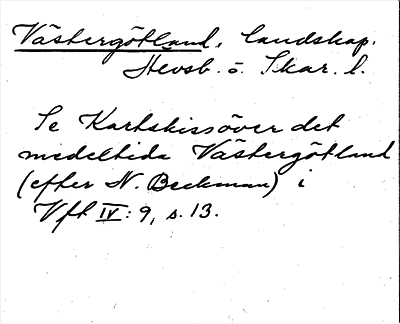 Västergötland, landskap.
Älvsb. o. Skar. l.
Se Kartskiss över det
medeltida Västergötland
(efter N. Beckman) i
Vft IV: 9, s. 13.